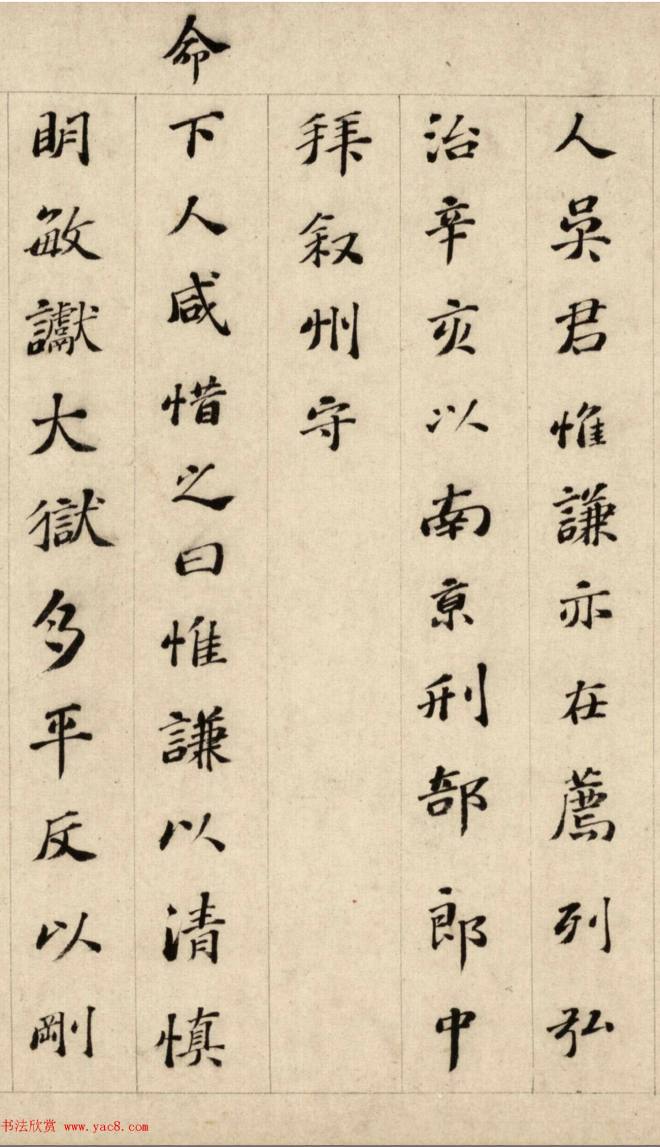 人吳君惟謙亦在薦列弘
治辛亥以南京刑部郎中
拜叙州守
命下人咸惜之曰惟謙以清慎
明敏讞大獄多平反以剛
书法欣赏 www.yac8.com